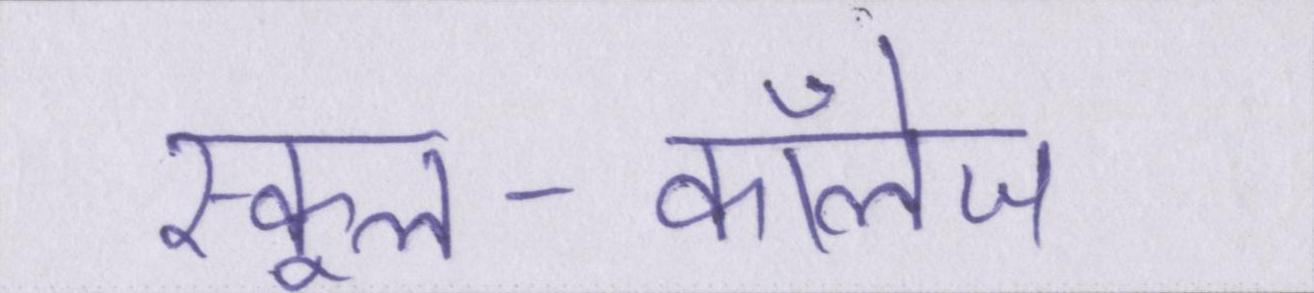 स्कूल - कॉलेज